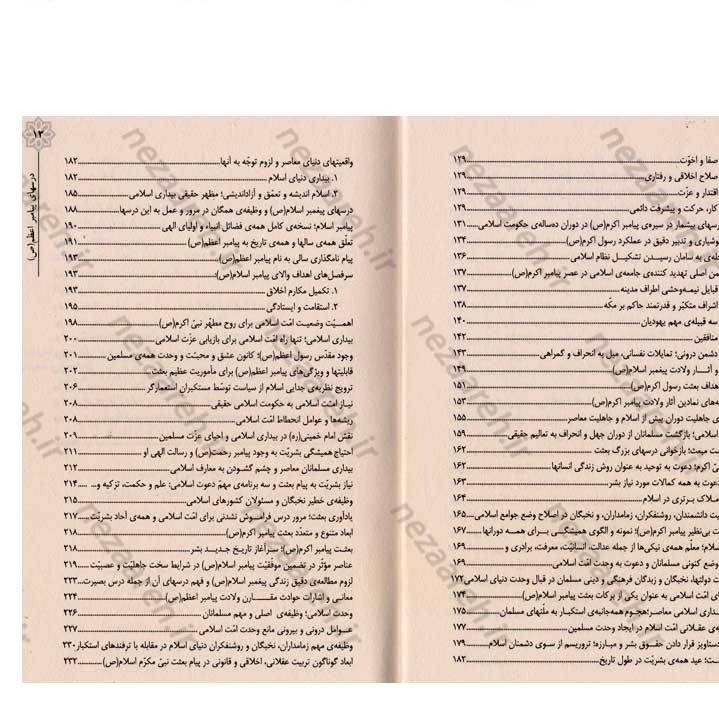 صفا و اخوّت ۱۲۹
صلاح اخلاقی و رفتاری ۱۲۹
اقتدار و عزّت ۱۲۹
کار، حرکت و پیشرفت دائمی ۱۲۹
رسهای بیشمار در سیره‌ی پیامبر اکرم(ص) در دوران ده‌ساله‌ی حکومت اسلامی ۱۳۱
وشیاری و تدبیر دقیق در عملکرد رسول اکرم(ص) ۱۳۴
حله‌ی به سامان رسیدن تشکیل نظام اسلامی ۱۳۶
من اصلی تهدید کننده‌ی جامعه‌ی اسلامی در عصر پیامبر اکرم(ص) ۱۳۷
قبایل نیمه‌وحشی اطراف مدینه ۱۳۷
اشراف متکبّر و قدرتمند حاکم بر مکّه ۱۳۸
سه قبیله‌ی مهم یهودیان ۱۴۰
منافقین ۱۴۲
دشمن درونی؛ تمایلات نفسانی، میل به انحراف و گمراهی ۱۴۳
و آثار ولادت پیغمبر اسلام(ص) ۱۴۹
هداف بعثت رسول اکرم(ص) ۱۵۱
ه‌های نمادین آثار ولادت پیامبر اکرم(ص) ۱۵۳
ی جاهلیت دوران پیش از اسلام و جاهلیت معاصر ۱۵۵
اسلامی؛ بازگشت مسلمانان از دوران جهل و انحراف به تعالیم حقیقی ۱۵۹
ت مبعث؛ بازخوانی درسهای بزرگ بعثت ۱۶۲
یّ اکرم؛ دعوت به توحید به عنوان روش زندگی انسانها ۱۶۲
دعوت به همه کمالات مورد نیاز بشر ۱۶۳
ملاک برتری در اسلام ۱۶۴
یت دانشمندان، روشنفکران، زمامداران، و نخبگان در اصلاح وضع جوامع اسلامی ۱۶۵
ت بی‌نظیر پیامبر اکرم(ص)؛ نمونه و الگوی همیشگی برای همه دورانها ۱۶۷
سلام؛ معلّم همه‌ی نیکی‌ها از جمله عدالت، انسانیّت، معرفت، برادری و ۱۶۹
وضع کنونی مسلمانان و دعوت به وحدت امّت اسلامی ۱۶۹
ت دولتها، نخبگان و زبدگان فرهنگی و دینی مسلمان در قبال وحدت دنیای اسلامی ۱۷۲
ی امّت اسلامی به عنوان یکی از برکات بعثت پیامبر اسلام(ص) ۱۷۴
داری اسلامی معاصر؛ هجوم همه‌جانبه‌ی استکبار به ملّتهای مسلمان ۱۷۵
ی عقلانی امّت اسلام در ایجاد وحدت مسلمین ۱۷۷
دستاویز قرار دادن حقوق بشر و مبارزه؛ تروریسم از سوی دشمنان اسلام ۱۷۹
ت؛ عید همه‌ی بشریّت در طول تاریخ ۱۸۲
۱۳
درسهای پیامبر اعظم(ص)
واقعیتهای دنیای معاصر و لزوم توجّه به آنها ۱۸۲
۱. بیداری دنیای اسلام ۱۸۲
۲. اسلام اندیشه و تعمّق و آزاداندیشی؛ مظهر حقیقی بیداری اسلامی ۱۸۵
درسهای پیغمبر اسلام(ص) و وظیفه‌ی همگان در مرور و عمل به این درسها ۱۸۸
پیامبر اسلام؛ نسخه‌ی کامل همه‌ی فضائل انبیاء و اولیای الهی ۱۹۰
تعلّق همه‌ی سالها و همه‌ی تاریخ به پیامبر اعظم(ص) ۱۹۱
پیام نامگذاری سالی به نام پیامبر اعظم(ص) ۱۹۳
سرفصل‌های اهداف والای پیامبر اسلام(ص): ۱۹۳
۱. تکمیل مکارم اخلاق ۱۹۳
۲. استقامت و ایستادگی ۱۹۵
اهمیّت وضعیت امّت اسلامی برای روح مطهّر نبیّ اکرم(ص) ۱۹۸
بیداری اسلامی؛ تنها راه امّت اسلامی برای بازیابی عزّت اسلامی ۲۰۰
وجود مقدّس رسول اعظم(ص)؛ کانون عشق و محبّت و وحدت همه‌ی مسلمین ۲۰۱
قابلیتها و ویژگی‌های پیامبر اعظم(ص) برای مأموریت عظیم بعثت ۲۰۲
ترویج نظریه‌ی جدایی اسلام از سیاست توسّط مستکبران استعمارگر ۲۰۶
نیاز امّت اسلامی به حکومت اسلامی حقیقی ۲۰۸
ریشه‌ها و عوامل انحطاط امّت اسلامی ۲۰۸
نقش امام خمینی(ره) در بیداری اسلامی و احیای عزّت مسلمین ۲۰۹
احتیاج همیشگی بشریّت به وجود پیامبر رحمت(ص) و رسالت الهی او ۲۱۱
بیداری مسلمانان معاصر و چشم گشودن به معارف اسلامی ۲۱۲
نیاز بشریّت به پیام بعثت و سه برنامه‌ی مهمّ دعوت اسلامی: علم و حکمت، تزکیه و... ۲۱۴
وظیفه‌ی خطیر نخبگان و مسئولان کشورهای اسلامی ۲۱۵
یادآوری بعثت؛ مرور درس فراموش نشدنی برای امّت اسلامی و همه‌ی آحاد بشریّت ۲۱۷
ابعاد متنوع و متعدّد بعثت پیامبر اکرم(ص) ۲۱۸
بعثت پیامبر اکرم(ص)؛ سرآغاز تاریخ جدید بشر ۲۱۸
عناصر مؤثر در تضمین موفّقیّت پیامبر اسلام(ص) در شرایط سخت جاهلیت و عصبیّت ۲۱۹
لزوم مطالعه‌ی دقیق زندگی پیغمبر اسلام(ص) و فهم درسهای آن از جمله درس بصیرت ۲۲۳
معانی و اشارات حوادث مقارن ولادت پیامبر اعظم(ص) ۲۲۴
وحدت اسلامی؛ وظیفه‌ی اصلی و مهم مسلمانان ۲۲۶
عوامل درونی و بیرونی مانع وحدت امّت اسلامی ۲۲۷
وظیفه‌ی مهم زمامداران، نخبگان و روشنفکران دنیای اسلام در مقابله با ترفندهای استکبار ۲۳۰
ابعاد گوناگون تربیت عقلانی، اخلاقی و قانونی در پیام بعثت نبیّ مکرّم اسلام(ص) ۲۳۲
nezaareh.ir